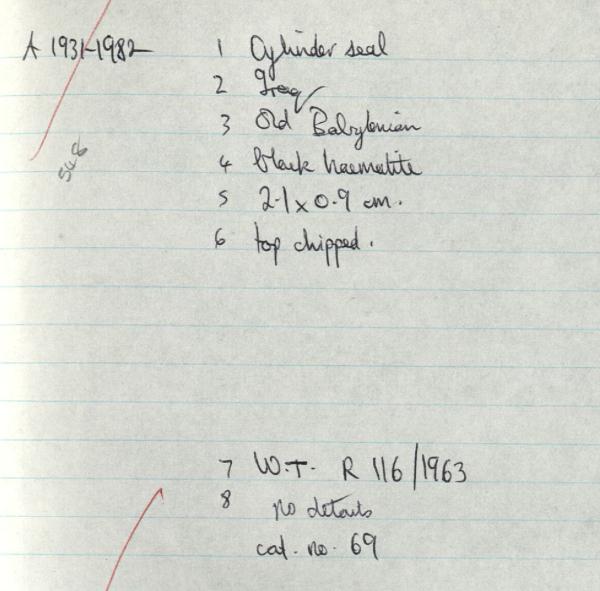 A 1931-1982 1 Cylinder seal
2 Iraq
3 Old Babylonian
4 black haematite
5 2.1 x 0.9 cm.
6 top chipped.
548
7 W.T. R 116/1963
8 no details
cat. no. 69